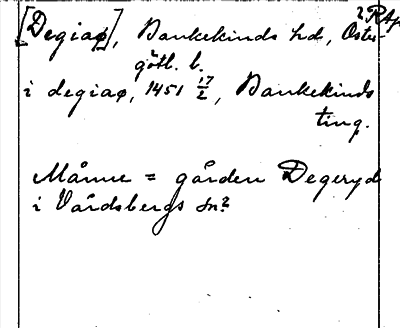 [Degiaø], Bankekinds hd, Öster-
götl. l.
i degiaø, 1451 17/2, Bankekinds
ting.
Månne = gården Degeryd
i Vårdsbergs sn?